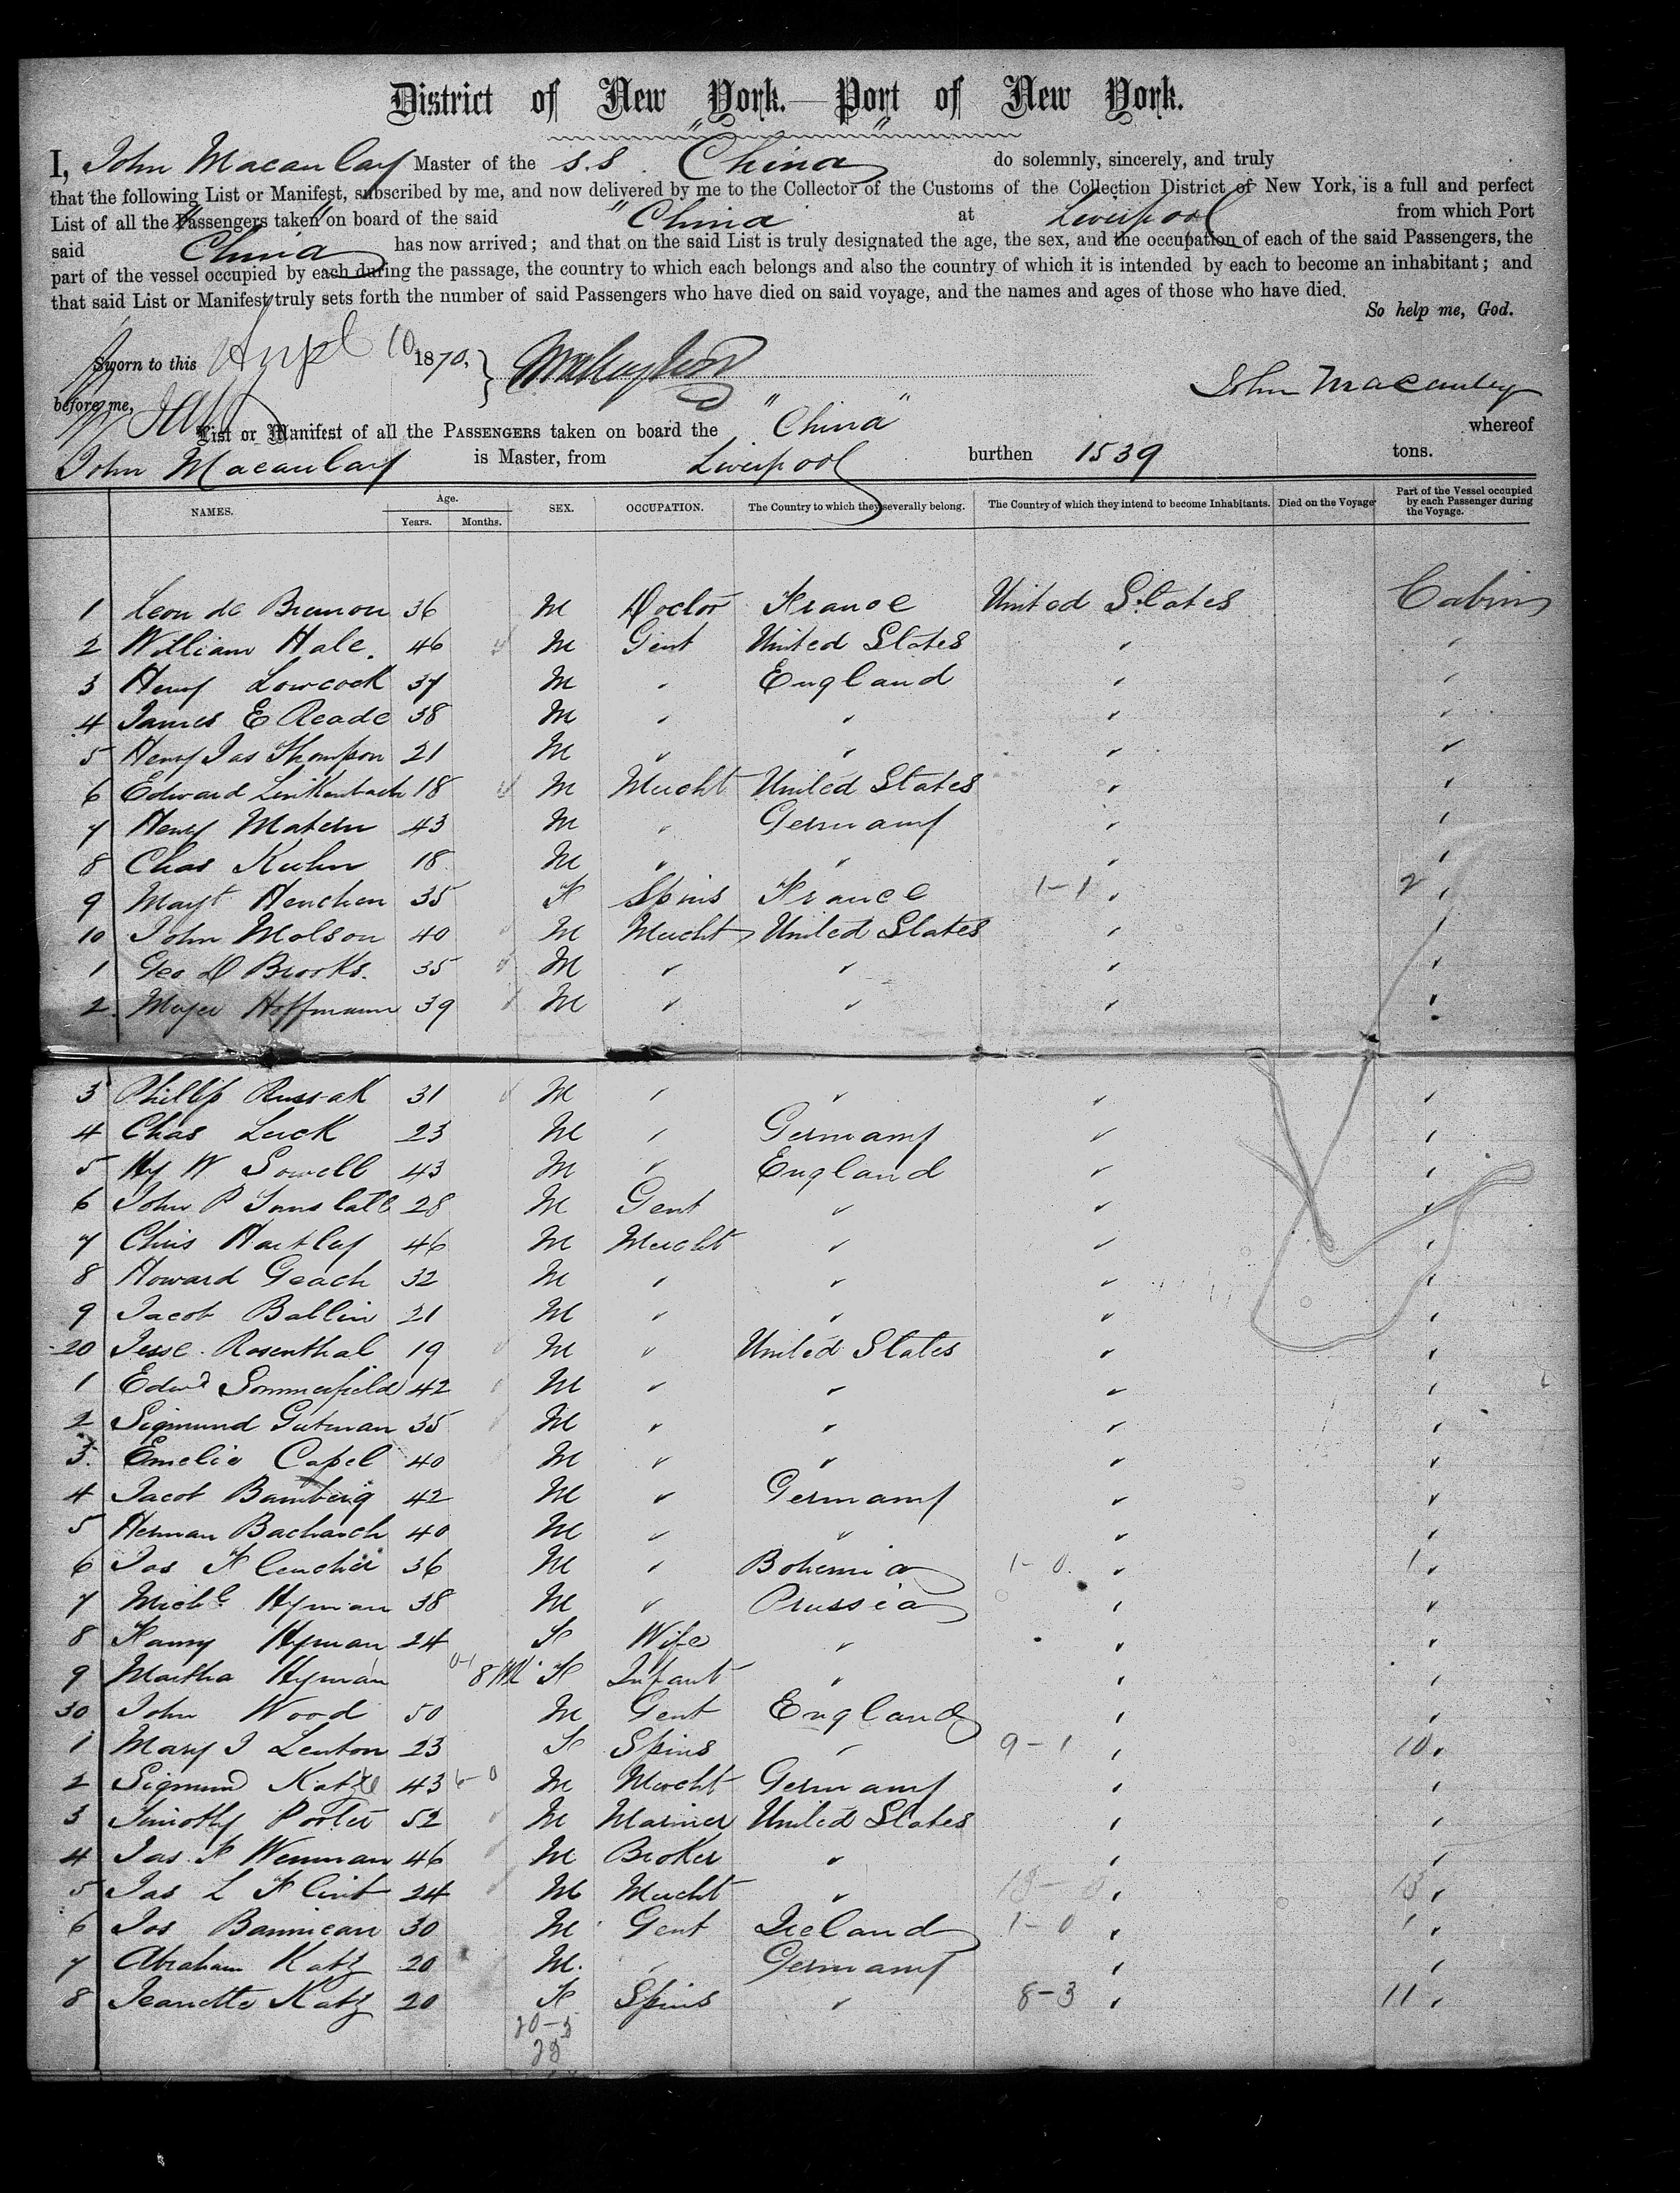 District of New York.—Port of New York.
I, John Macaulay Master of the s.s. "China" do solemnly, sincerely, and truly
that the following List or Manifest, subscribed by me, and now delivered by me to the Collector of the Customs of the Collection District of New York, is a full and perfect
List of all the Passengers taken on board of the said "China" at Liverpool from which Port
said "China" has now arrived; and that on the said List is truly designated the age, the sex, and the occupation of each of the said Passengers, the
part of the vessel occupied by each during the passage, the country to which each belongs and also the country of which it is intended by each to become an inhabitant; and
that said List or Manifest truly sets forth the number of said Passengers who have died on said voyage, and the names and ages of those who have died.
So help me, God.
Sworn to this 10 1870.
John Macaulay
before me,
List or Manifest of all the PASSENGERS taken on board the "China" whereof
John Macaulay is Master, from Liverpool burthen 1539 tons.
NAMES. Age. Years. Months. SEX. OCCUPATION. The Country to which they severally belong. The Country of which they intend to become Inhabitants. Died on the Voyage Part of the Vessel occupied by each Passenger during the Voyage.
1 Leon de Bremon 36 M Doctor France United States Cabin
2 William Hale 46 M Gent United States " "
3 Henry Lowcock 37 M " England " "
4 James E Reade 38 M " " " "
5 Henry Jas Thompson 21 M " " " "
6 Edward Linkenbach 18 M Mercht United States " "
7 Henry Matern 43 M " Germany " "
8 Chas Kuhn 18 M " " " "
9 Margt Henchen 35 F Spins France 1-1 " 2 "
10 John Molson 40 M Mercht United States " "
1 Geo D Brooks. 35 M " " " "
2 Mayer Hoffmann 39 M " " " "
3 Phillip Russak 31 M " " " "
4 Chas Luck 23 M " Germany " "
5 Hy W Sowell 43 M " England " "
6 John P 28 M Gent " " "
7 Chris Hartley 46 M Mercht " " "
8 Howard Geach 32 M " " " "
9 Jacob Ballin 21 M " " " "
20 Jesse Rosenthal 19 M " United States " "
1 Edwd Sommerfield 42 M " " " "
2 Sigmund Gutman 35 M " " " "
3 Emelio Capel 40 M " " " "
4 Jacob Bamberg 42 M " Germany " "
5 Herman Bacharach 40 M " " " "
6 Jos 36 M " Bohemia 1-0 " 1 "
7 Michl Hyman 38 M " Prussia " "
8 Fanny Hyman 24 F Wife " " "
9 Martha Hyman 0-1 8 M F Infant " " "
30 John Wood 50 M Gent England " "
1 Mary J Lenton 23 F Spins " 9-1 " 10 "
2 Sigmund Katz 43 6-0 M Mercht Germany " "
3 Timothy Porter 52 M Mariner United States " "
4 Jas F Wenman 46 M Broker " " "
5 Jas L Flint 24 M Mercht " " 13 "
6 Jos Bannican 30 M Gent Ireland 1-0 " 1 "
7 Abraham Katz 20 M. " Germany " "
8 Jeanette Katz 20 F Spins " 8-3 " 11 "